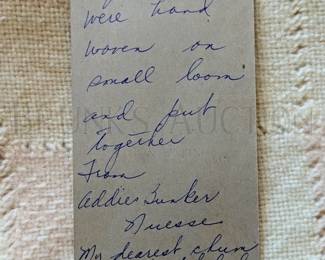 were hand
woven on
small loom
and put
together
From
Addie Bunker
Nuesse
My dearest chum